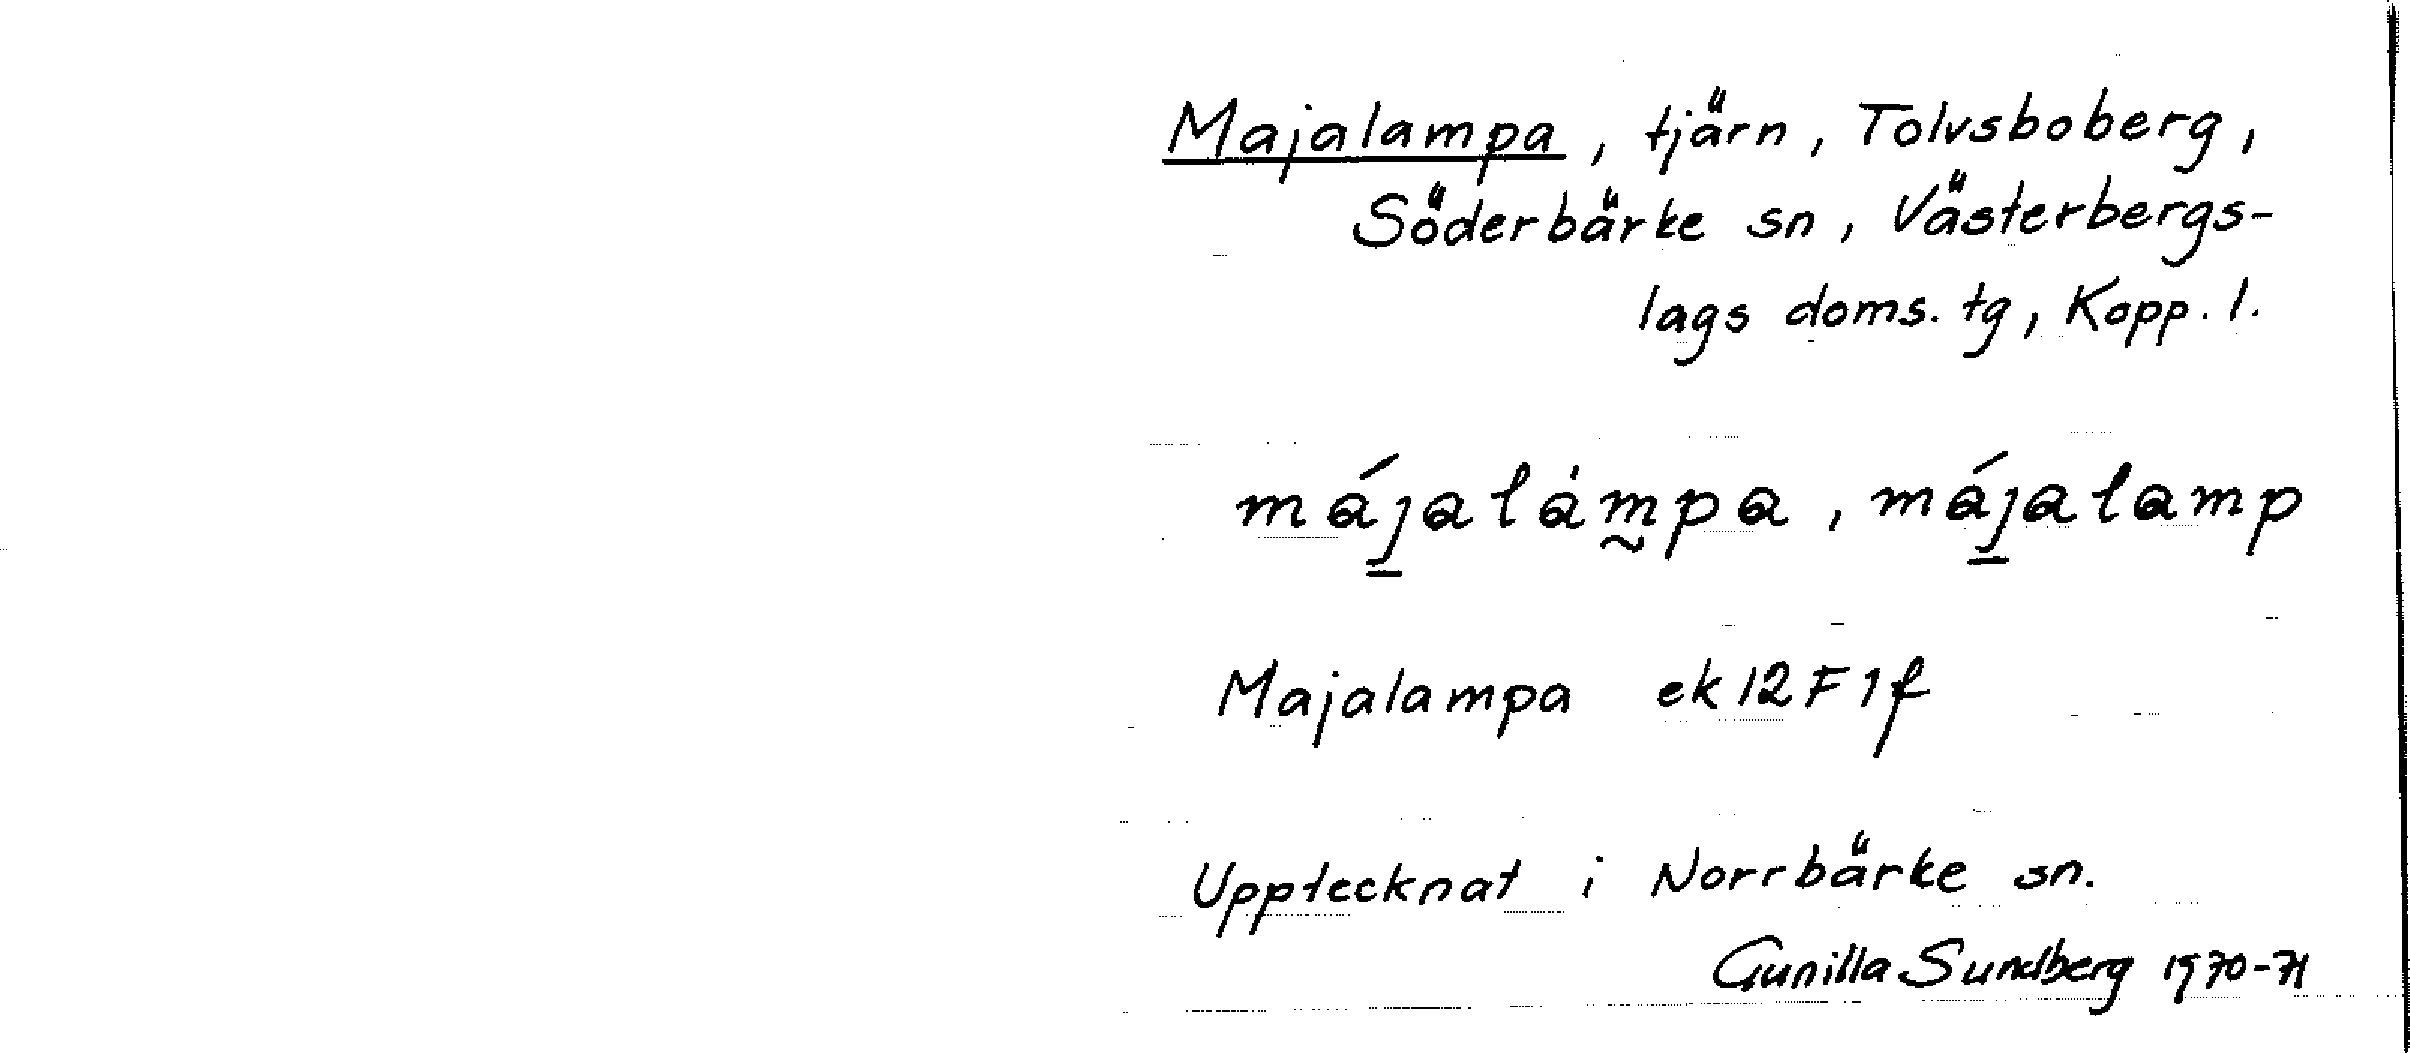 Majalampa, tjärn, Tolvsboberg,
Söderbärke sn, Västerbergs-
lags doms. tg, Kopp. l.
májalàmpa, májalamp
Majalampa ek 12F1f
Upptecknat i Norrbärke sn.
Gunilla Sundberg 1970-71